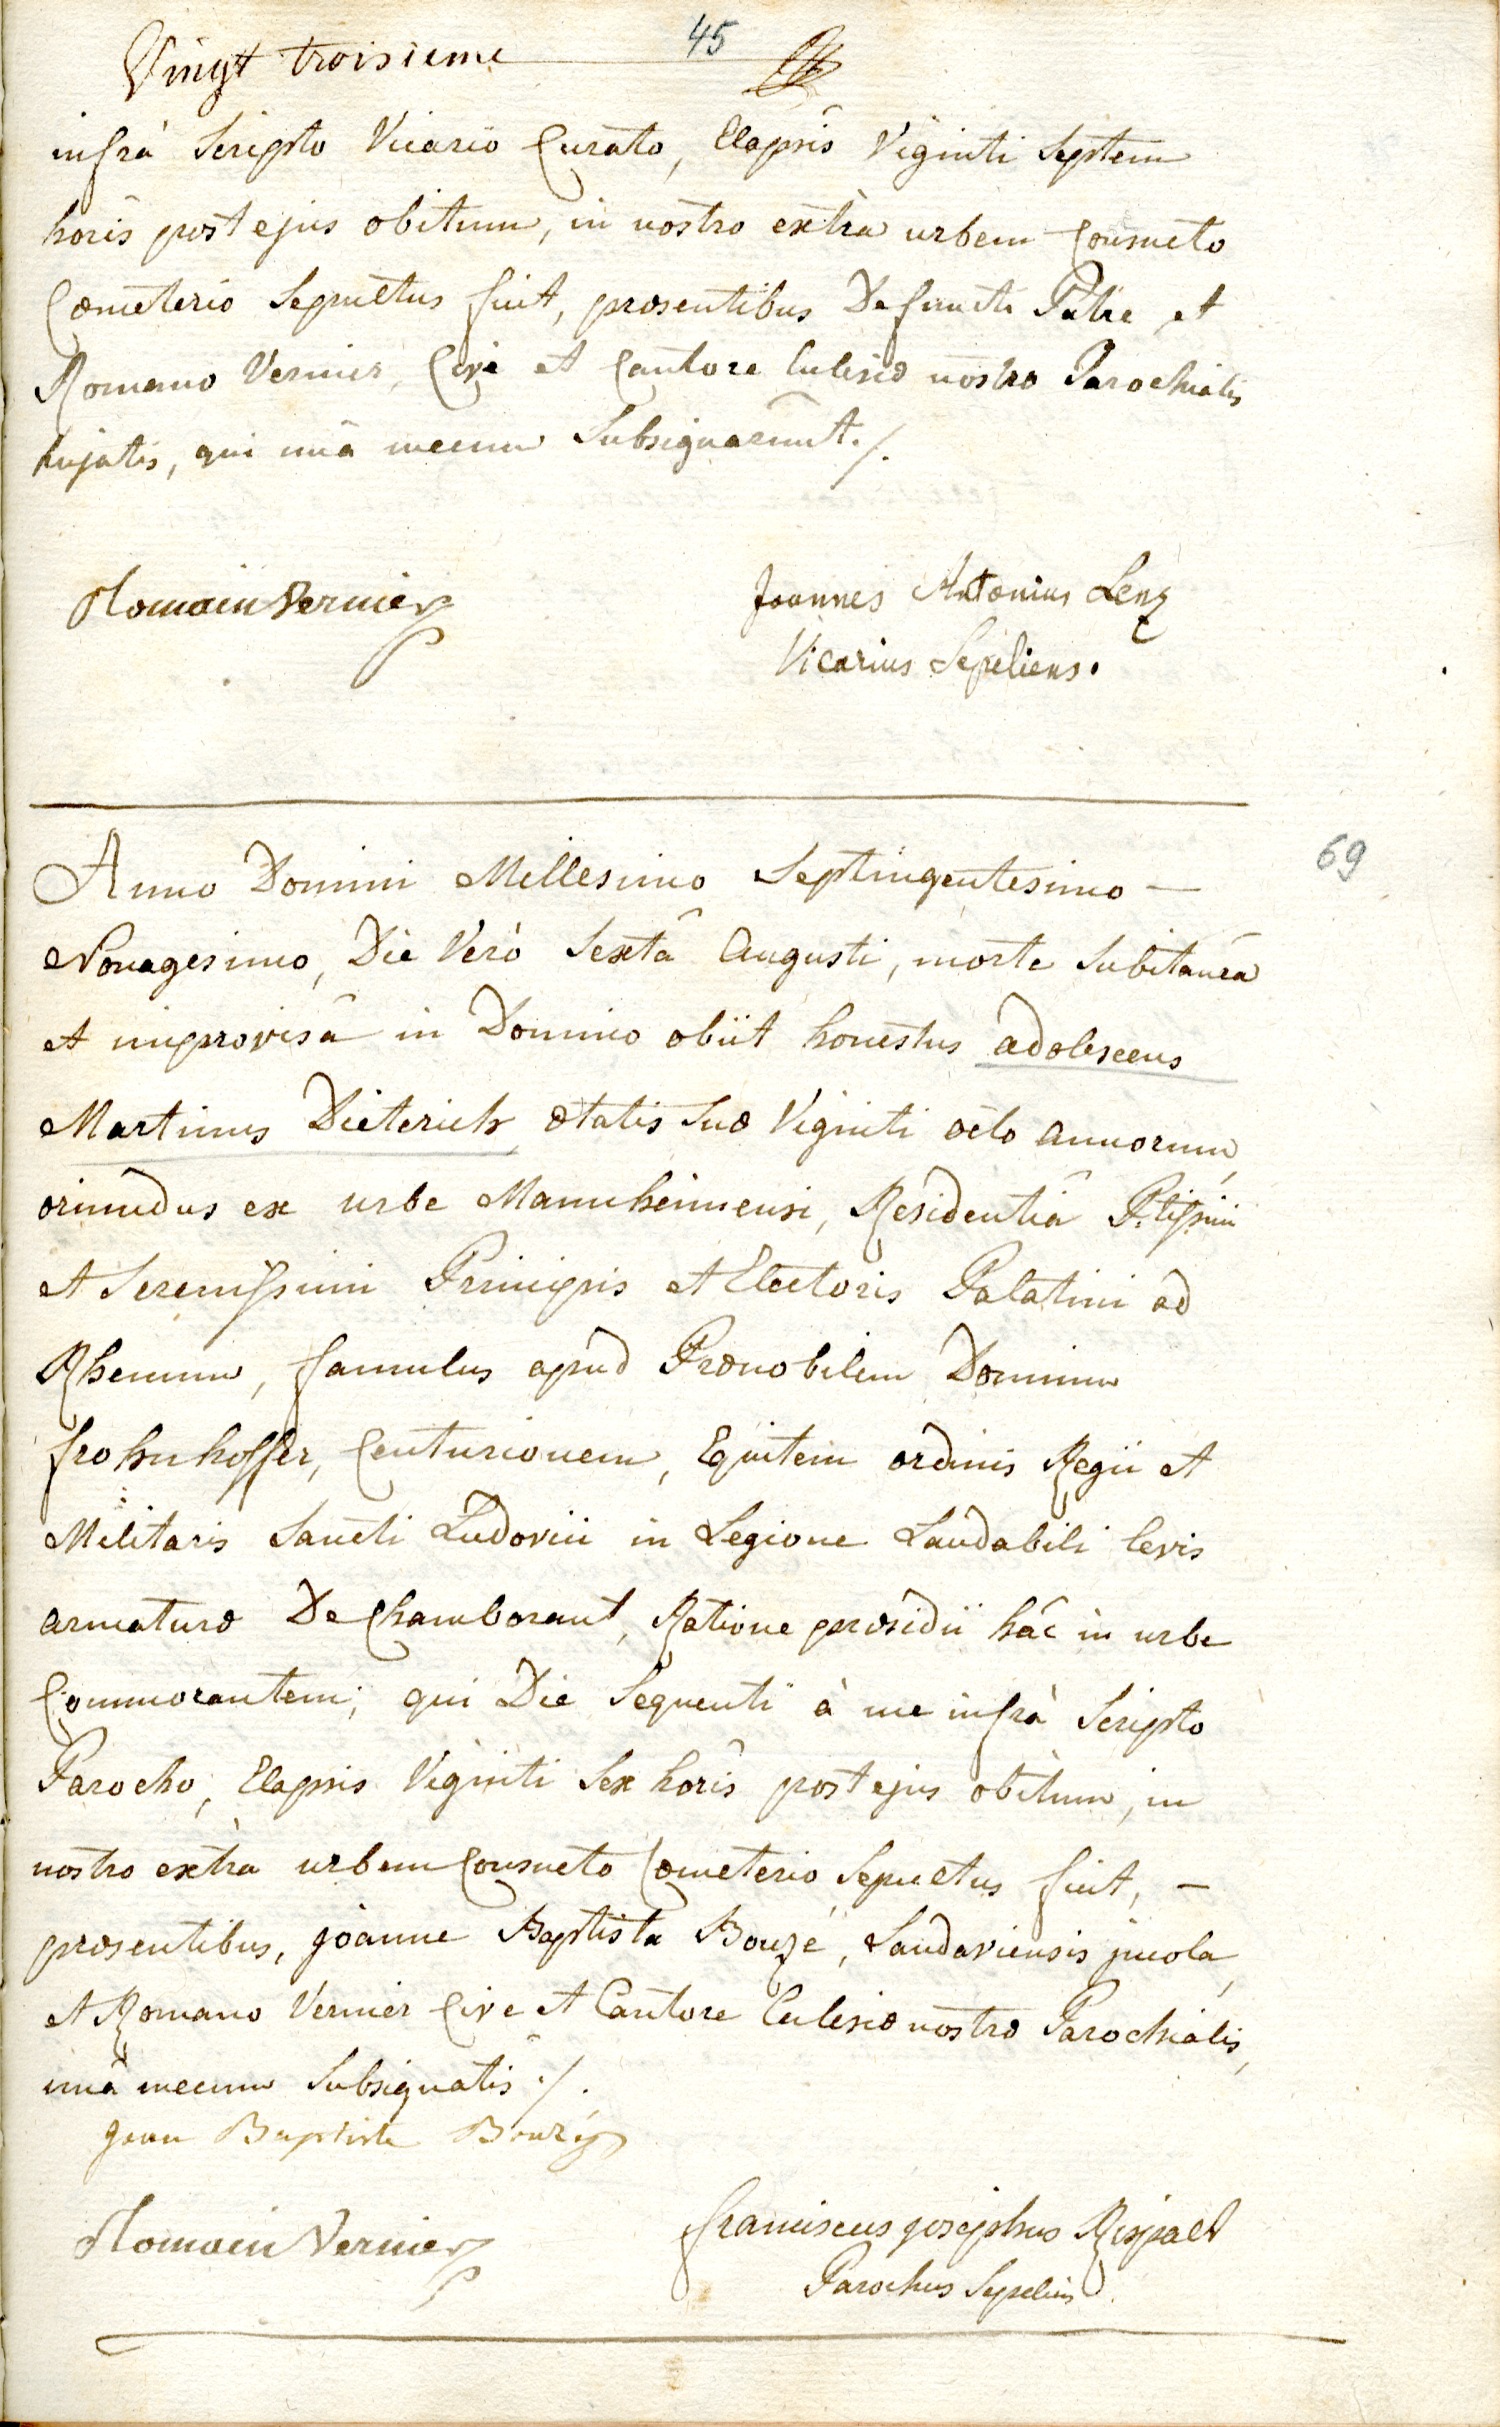 Vingt troisieme
45
infrà Scripto Vicario Curato, Elapsis Viginti Septem
horis post ejus obitum, in nostro extra urbem Consueto
Cœmeterio Sepultus fuit, præsentibus Defuncti Patre et
Romano Vernier, Cive et Cantore Ecclesiæ nostræ Parochialis
hujatis, qui unà mecum Subsignarunt ./.
Romain Vernier
Joannes Antonius Lenz
Vicarius Sepeliens.
69
Anno Domini Millesimo Septingentesimo —
Nonagesimo, Die Verò Sextâ Augusti, morte Subitaneâ
et improvisâ in Domino obiit honestus adolescens
Martinus Dieterich ætatis Suæ Viginti octo annorum,
oriundus ex urbe Mannheimensi, Residentiâ P.tissimi
et Serenissimi Principis et Electoris Palatini ad
Rhenum, famulus apud Prænobilem Dominum
frohnhoffer, Centurionem, Equitem ordinis Regii et
Militaris Sancti Ludovici in Legione Laudabili levis
armaturæ De Chamborant, Ratione præsidii hâc in urbe
Commorantem; qui Die Sequenti à me infrà Scripto
Parocho, Elapsis Viginti Sex horis post ejus obitum, in
nostro extra urbem Consueto Cœmeterio Sepultus fuit, —
præsentibus, joanne Baptista Bouzé, Landaviensis incola,
et Romano Vernier Cive et Cantore Ecclesiæ nostræ Parochialis,
unà mecum Subsignatis ./.
Jean Baptiste Bouzé
Romain Vernier
franciscus josephus Rispalt
Parochus Sepeliens